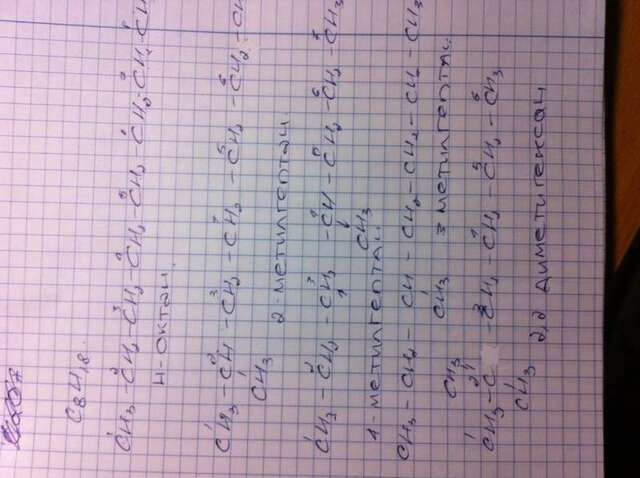 C8H18.
CH3 - CH2 CH2 CH2 - CH2 - CH2 CH2 CH3
н-октан.
CH3 - CH - CH2 - CH2 - CH2 - CH2 - CH3
CH3
2-метилгептан
CH3 - CH2 - CH2 - CH - CH2 - CH2 - CH3
CH3
4-метилгептан
CH3 - CH2 - CH - CH2 - CH2 - CH2 - CH3
CH3
3 метилгептан.
CH3
CH3 - C - CH2 - CH2 - CH2 - CH3
CH3
2,2 диметигексан